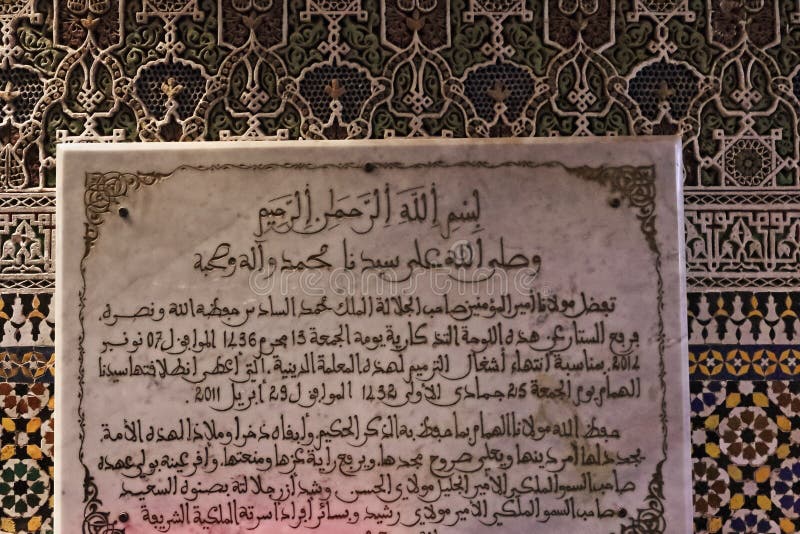 بسم الله الرحمن الرحيم
وصلى الله على سيدنا محمد وآله وصحبه
تفضل مولانا أمير المؤمنين صاحب الجلالة الملك محمد السادس حفظه الله ونصره
برفع الستار عن هذه اللوحة التذكارية يومه الجمعة 13 محرم 1436 الموافق ل 07 نونبر
2014 بمناسبة انتهاء أشغال الترميم لهذه المعلمة الدينية، التي أعطى انطلاقتها سيدنا
الهمام يوم الجمعة 25 جمادى الأولى 1432 الموافق ل 29 أبريل 2011
حفظ الله مولانا الهمام بما حفظ به الذكر الحكيم وأبقاه ذخرا وملاذا لهذه الأمة،
يجدد لها أمر دينها، ويعلي صروح مجدها، ويرفع راية عزها ومنعتها، وأقر عينه بولي عهده
صاحب السمو الملكي الأمير الجليل مولاي الحسن، وشد أزر جلالته بصنوه السعيد
صاحب السمو الملكي الأمير مولاي رشيد، وبسائر أفراد أسرته الملكية الشريفة